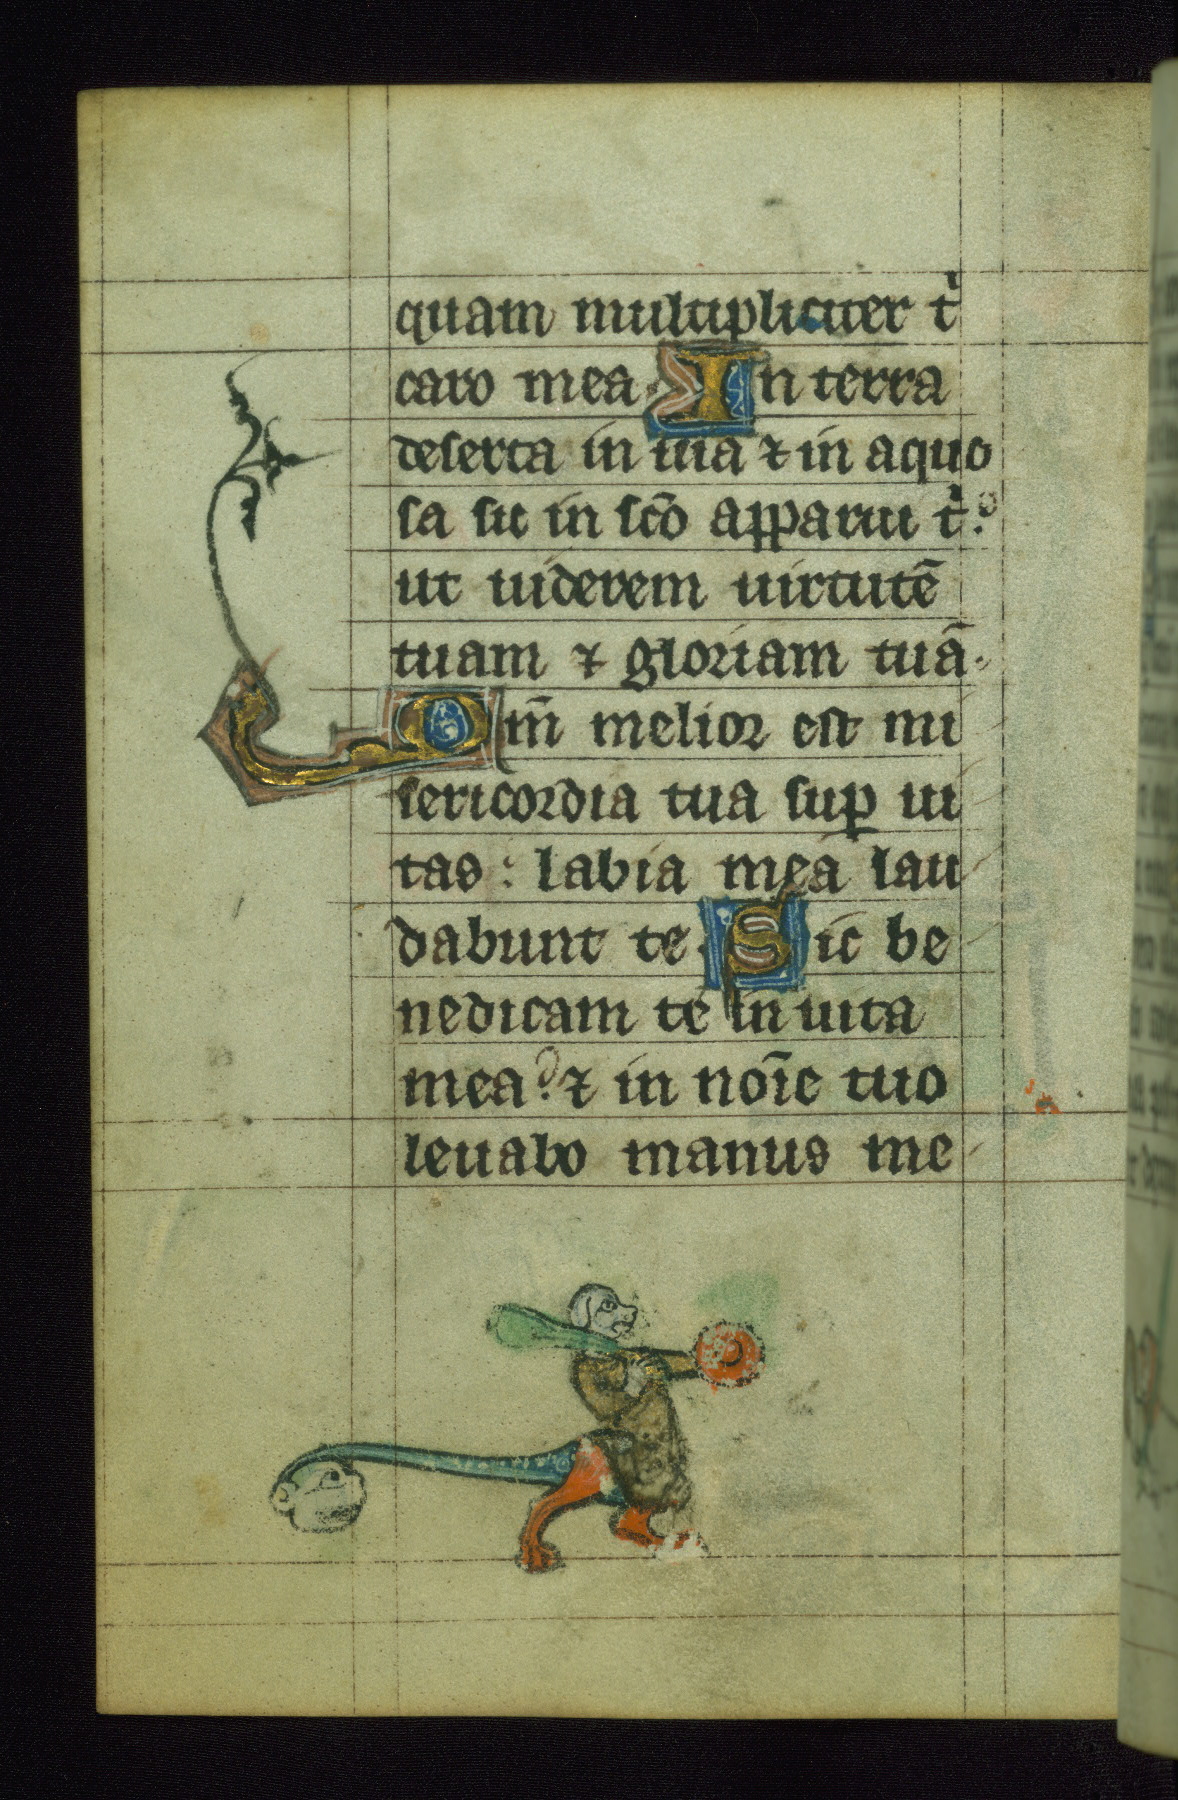 quam multipliciter t̾
caro mea In terra
deserta in uia ⁊ in aquo
sa sic in sc̄o apparui t̾
ut uiderem uirtutē
tuam ⁊ gloriam tuā.
Qm̄ melior est mi
sericordia tua suꝑ ui
tas: labia mea lau
dabunt te. Sic be
nedicam te in uita
mea ⁊ in noīe tuo
leuabo manus me